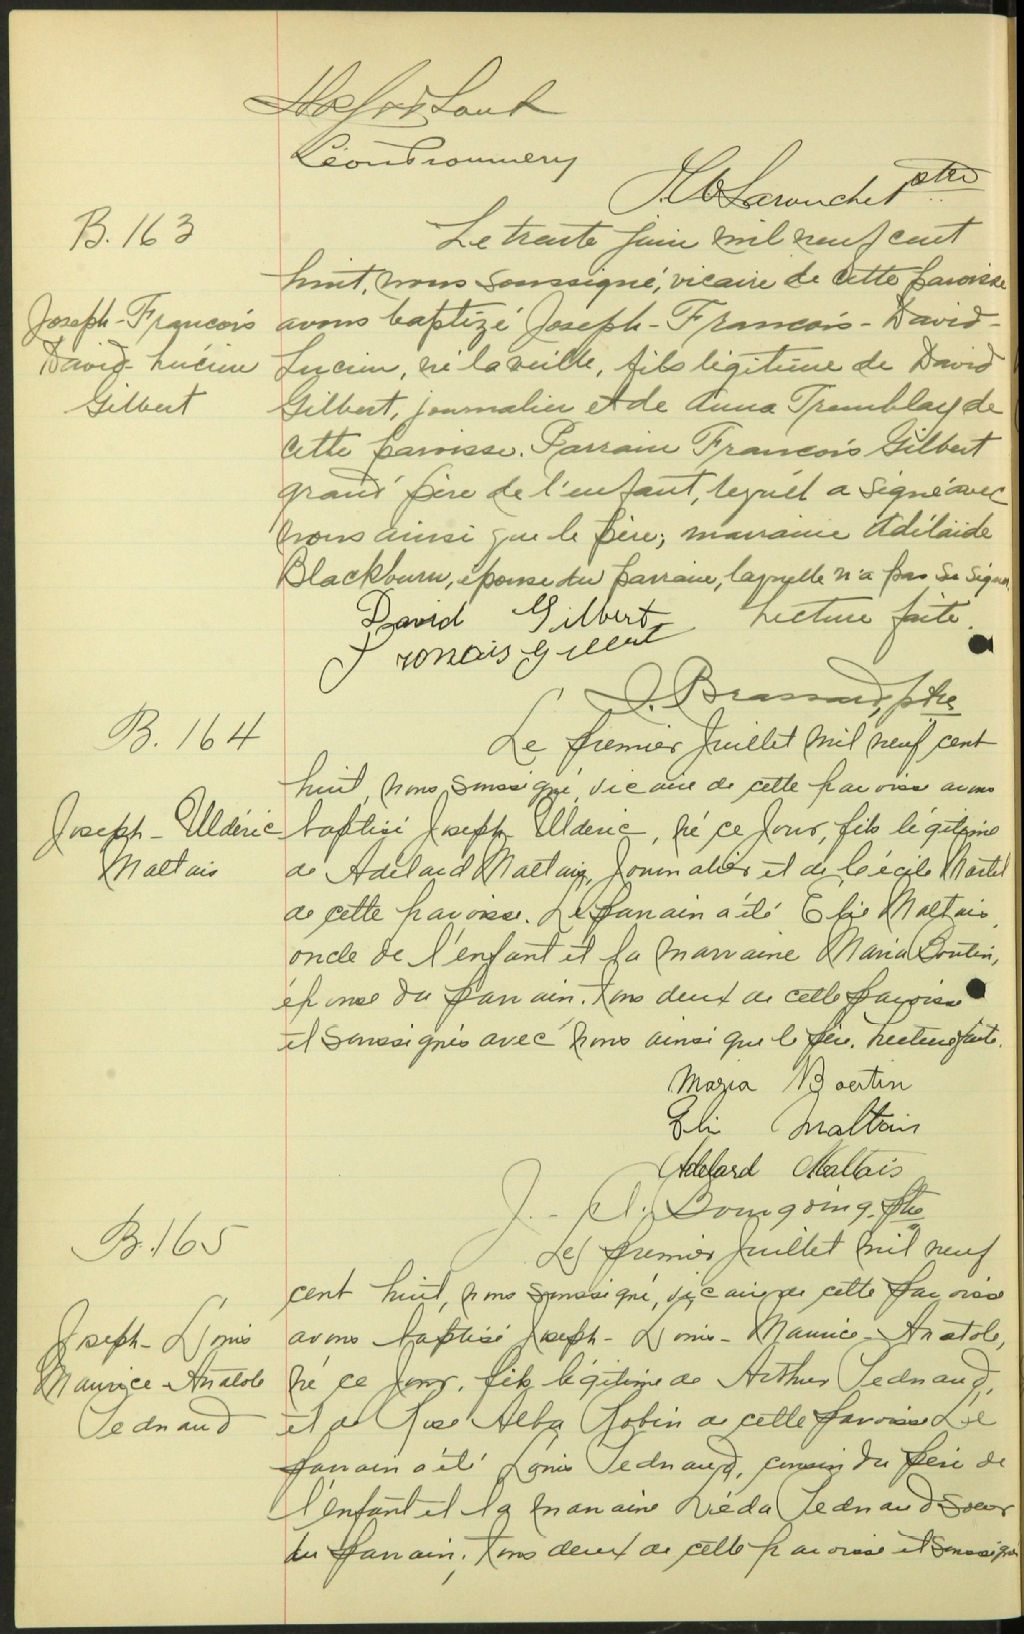 B. 163
Le trente juin mil neuf cent
huit, nous soussigné, vicaire de cette paroisse
Joseph-François
avons baptizé Joseph-François-David-
David-Lucien
Lucien, né la veille, fils légitime de David
Gilbert
Gilbert, journalier et de Anna Tremblay de
cette paroisse. Parrain François Gilbert
grand'père de l'enfant, lequel a signé avec
nous ainsi que le père; marraine Adélaïde
Blackburn, épouse du parrain, laquelle n'a pas su signer.
Lecture faite.
David Gilbert
J. Brassard, ptre
B. 164
Le premier Juillet mil neuf cent
huit, nous soussigné, vicaire de cette paroisse avons
Joseph-Ulldéric
baptisé Joseph-Ulderic, né ce jour, fils légitime
Maltais
de Adelard Maltais, Journalier et de Cécile Martel
de cette paroisse. Le parrain a été Elie Maltais,
oncle de l'enfant et la marraine Maria Boutin,
épouse du parrain. tous deux de cette paroisse
et soussignés avec nous ainsi que le père. Lecture faite.
Maria Boutin
Eli Maltais
Adelard Maltais
J.-A. Bourgoing, ptre
B. 165
Le premier Juillet mil neuf
cent huit, nous soussigné, vicaire de cette paroisse
Joseph-Louis
avons baptisé Joseph-Louis-Maurice-Anatole,
Maurice-Anatole
né ce jour, fils légitime de Arthur Pednaud,
Pednaud
et de Rose Alba Gobin de cette paroisse Le
parrain a été Louis Pednaud, cousin du père de
l'enfant et la marraine Pednaud soeur
du parrain; tous deux de cette paroisse et soussignés